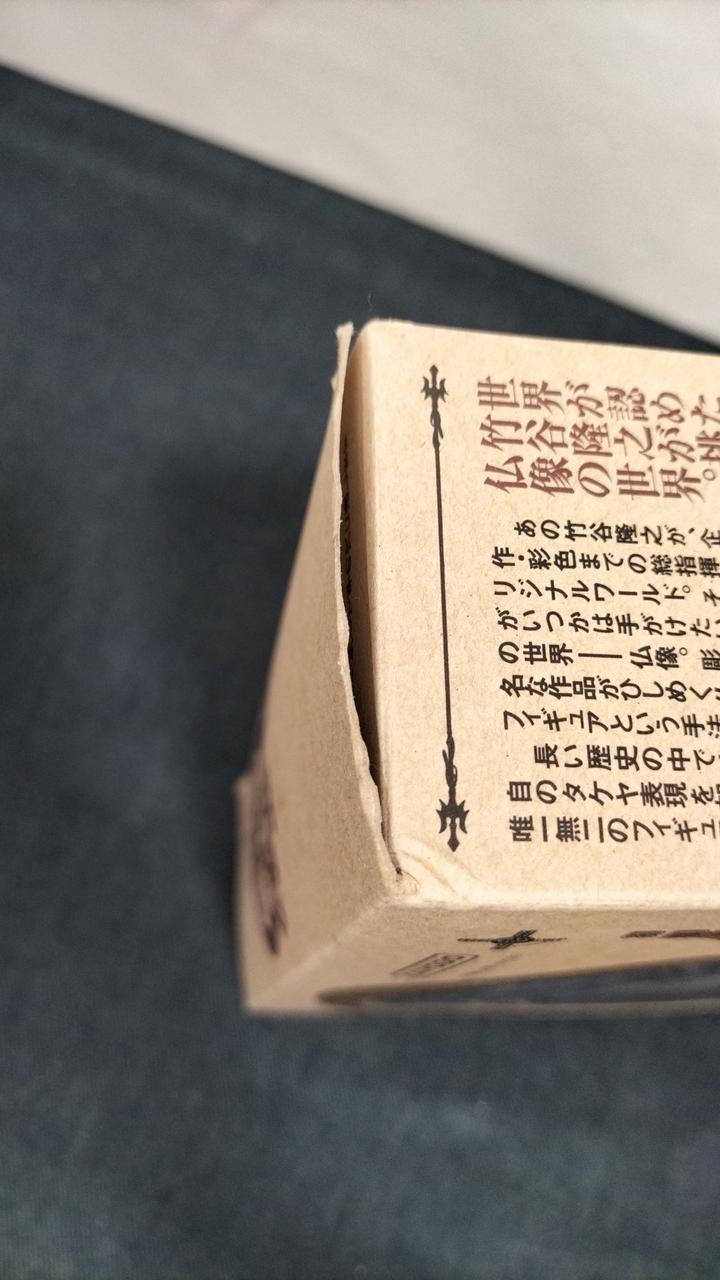 世界が認めた
竹谷隆之が挑
仏像の世界。
あの竹谷隆之が、企
作・彩色までの総指揮
リジナルワールド。そ
がいつかは手がけた、
の世界――仏像。彫
名な作品がひしめく
フィギュアという手法
長い歴史の中で
自のタケヤ表現を
唯一無二のフィギュ